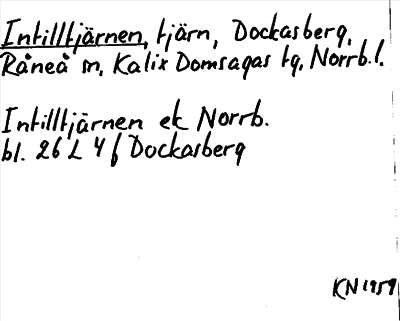 Intilltjärnen, tjärn, Dockasberg,
Råneå sn, Kalix Domsagas tg, Norrb.l.
Intilltjärnen ek Norrb.
bl. 26 L 4 f Dockasberg
KN 1959